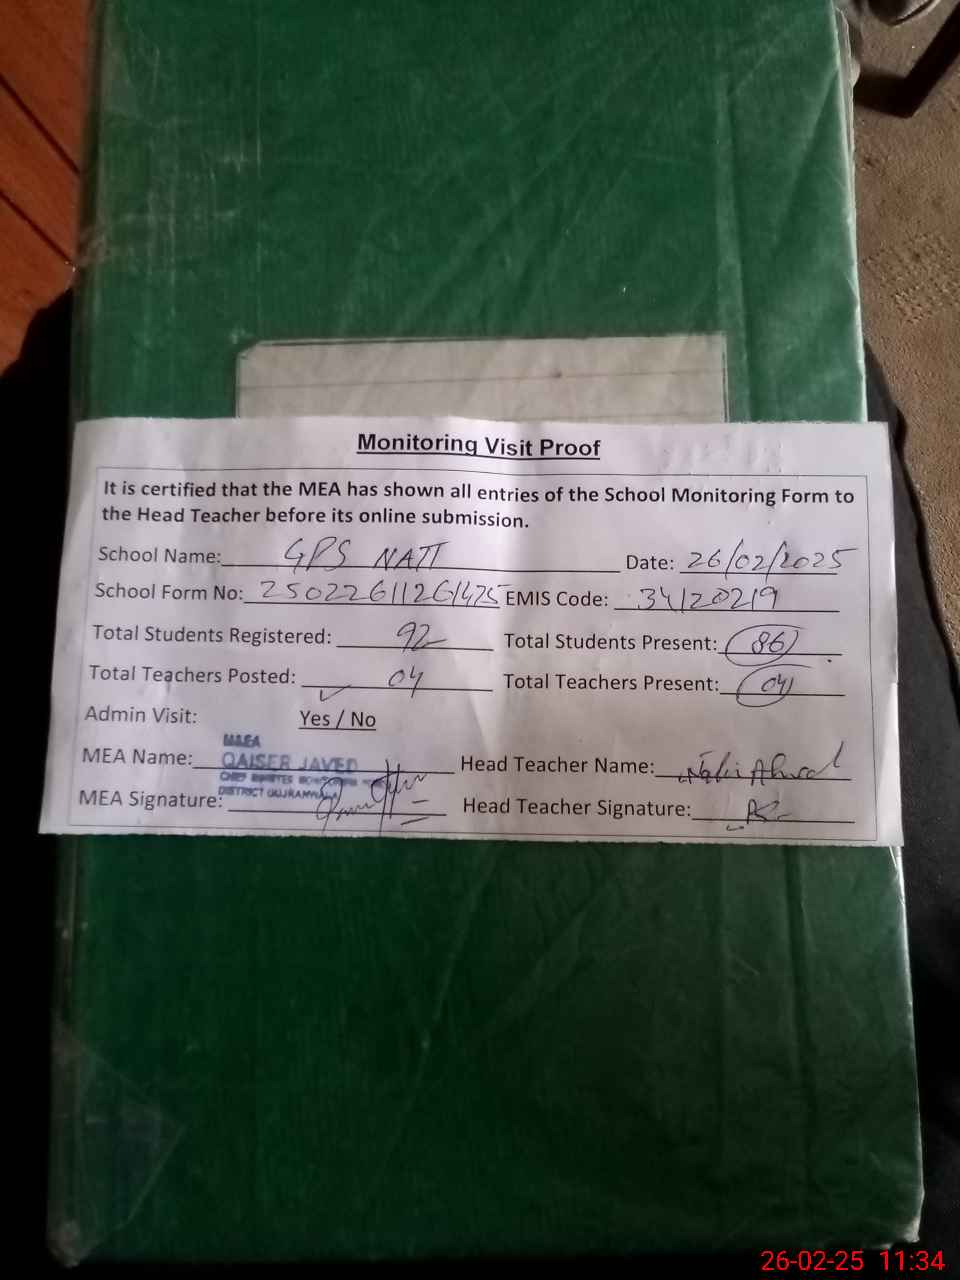 Monitoring Visit Proof
It is certified that the MEA has shown all entries of the School Monitoring Form to
the Head Teacher before its online submission.
School Name: GPS NATT Date: 26/02/2025
School Form No: EMIS Code: 34120219
Total Students Registered: 92 Total Students Present: 86
Total Teachers Posted: 04 Total Teachers Present: 04
Admin Visit: Yes / No
MEA
MEA Name: QAISER JAVED Head Teacher Name: Ahmad
DISTRICT GUJRANWALA
MEA Signature: Head Teacher Signature:
26-02-25 11:34